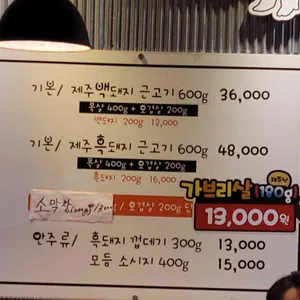 기본/ 제주백돼지 근고기 600g 36,000
목살 400g + 오겹살 200g
백돼지 200g 12,000
기본/ 제주흑돼지 근고기 600g 48,000
목살 400g + 오겹살 200g
흑돼지 200g 16,000
가브리살 (180g)
13,000원
소막창
/ 오겹살 200g
안주류/ 흑돼지 껍데기 300g 13,000
모듬 소시지 400g 15,000